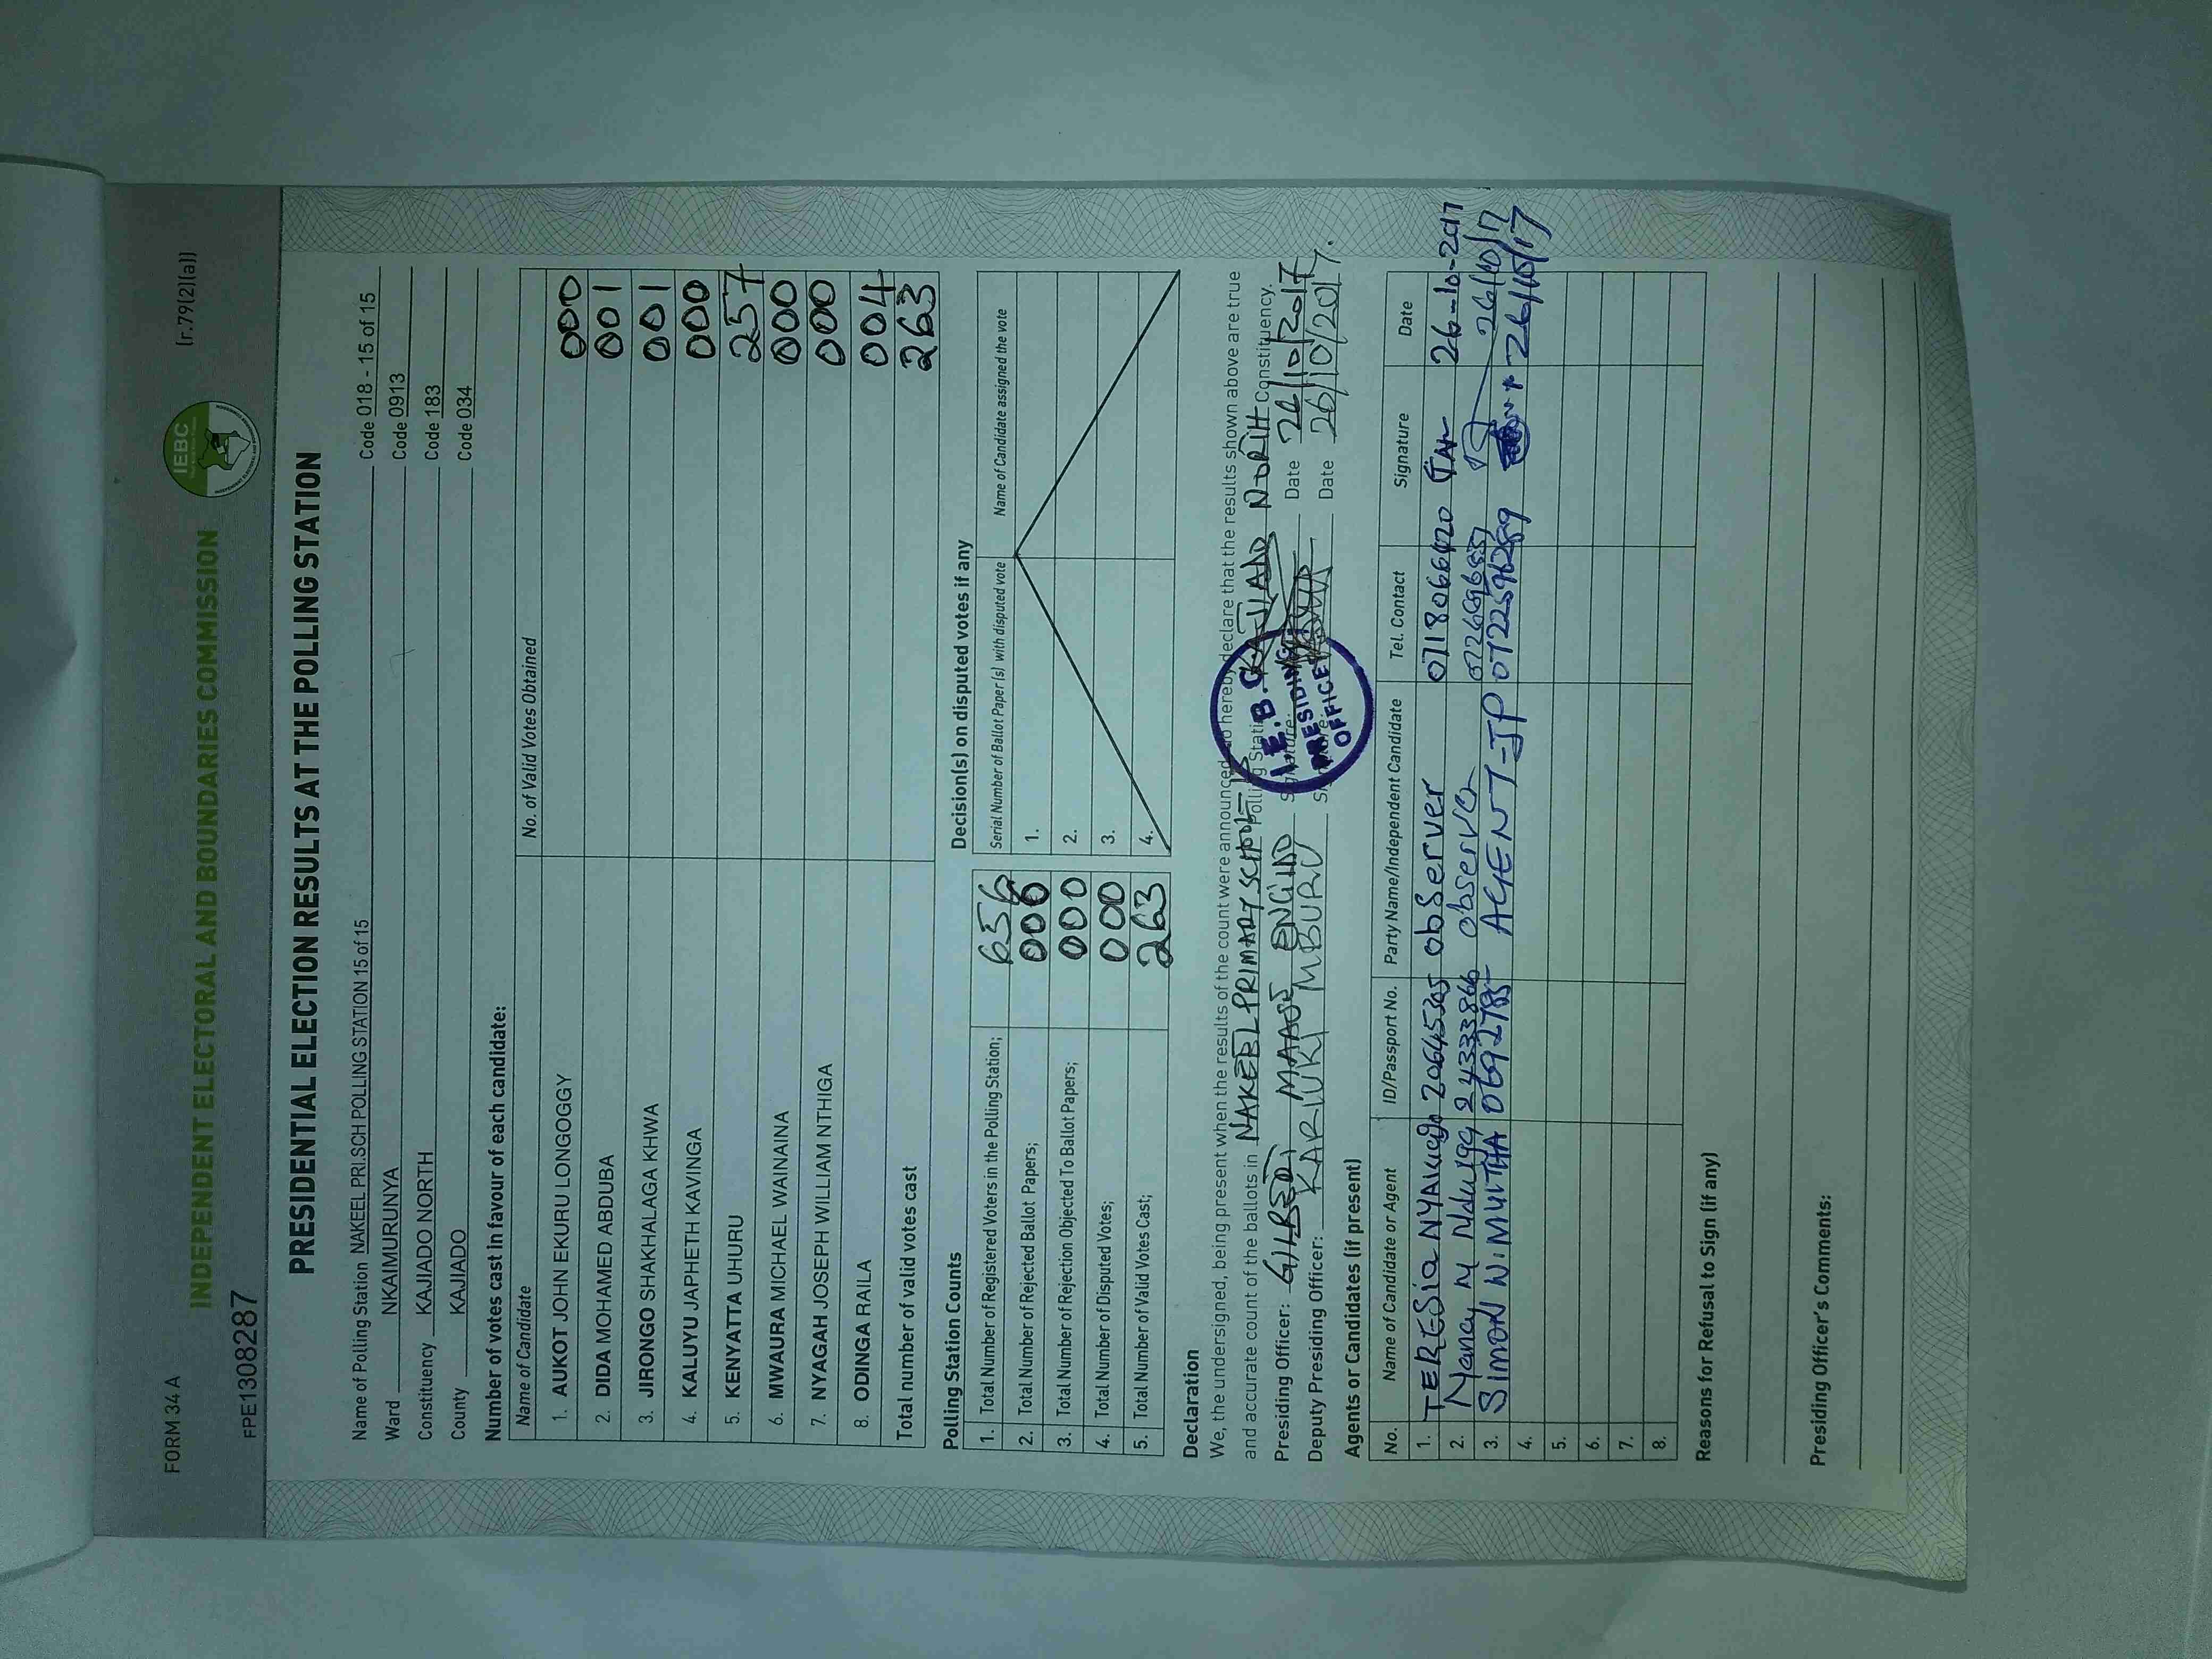 FORM 34 A
(r.79(2)(a))
INDEPENDENT ELECTORAL AND BOUNDARIES COMMISSION
IEBC
FPE1308287
PRESIDENTIAL ELECTION RESULTS AT THE POLLING STATION
Name of Polling Station NAKEEL PRI.SCH POLLING STATION 15 of 15 Code 018 - 15 of 15
Ward NKAIMURUNYA Code 0913
Constituency KAJIADO NORTH Code 183
County KAJIADO Code 034
Number of votes cast in favour of each candidate:
Name of Candidate No. of Valid Votes Obtained
1. AUKOT JOHN EKURU LONGOGGY 000
2. DIDA MOHAMED ABDUBA 001
3. JIRONGO SHAKHALAGA KHWA 001
4. KALUYU JAPHETH KAVINGA 000
5. KENYATTA UHURU 257
6. MWAURA MICHAEL WAINAINA 000
7. NYAGAH JOSEPH WILLIAM NTHIGA 000
8. ODINGA RAILA 004
Total number of valid votes cast 263
Polling Station Counts
1. Total Number of Registered Voters in the Polling Station; 656
2. Total Number of Rejected Ballot Papers; 000
3. Total Number of Rejection Objected To Ballot Papers; 000
4. Total Number of Disputed Votes; 000
5. Total Number of Valid Votes Cast; 263
Decision(s) on disputed votes if any
Serial Number of Ballot Paper(s) with disputed vote Name of Candidate assigned the vote
1.
2.
3.
4.
Declaration
We, the undersigned, being present when the results of the count were announced, do hereby declare that the results shown above are true
and accurate count of the ballots in NAKEEL PRIMARY SCHOOL-15 Polling Station KAJIADO NORTH Constituency.
Presiding Officer: Signature: Date 26/10/2017
Deputy Presiding Officer: KARIUKI MBURU Date 26/10/2017.
I.E.B.C
PRESIDING
OFFICER
Agents or Candidates (if present)
No. Name of Candidate or Agent ID/Passport No. Party Name/Independent Candidate Tel. Contact Signature Date
1. TERESia 20645305 obServer 26-10-2017
2. Nancy M 24333866 observer 26/10/17
3. SIMON N. MUITHA 0692785 AGENT-JP 0722596289 26/10/17
4.
5.
6.
7.
8.
Reasons for Refusal to Sign (if any)
Presiding Officer's Comments: